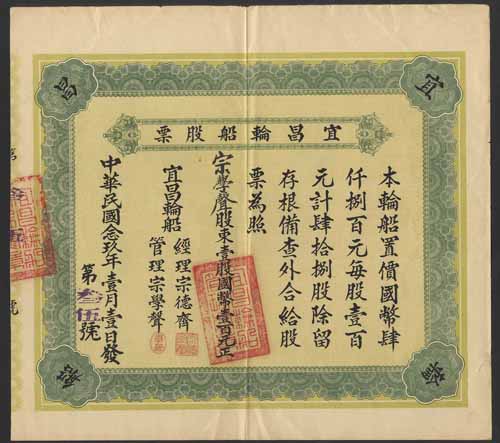 宜昌輪船
宜昌輪船股票
本輪船置價國幣肆
仟捌百元每股壹百
元計肆拾捌股除留
存根備查外合給股
票為照
宗學聲股東壹股國幣壹百元正
宜昌輪船
經理宗德齊
管理宗學聲
中華民國念玖年壹月壹日發
第叁伍號
第
號